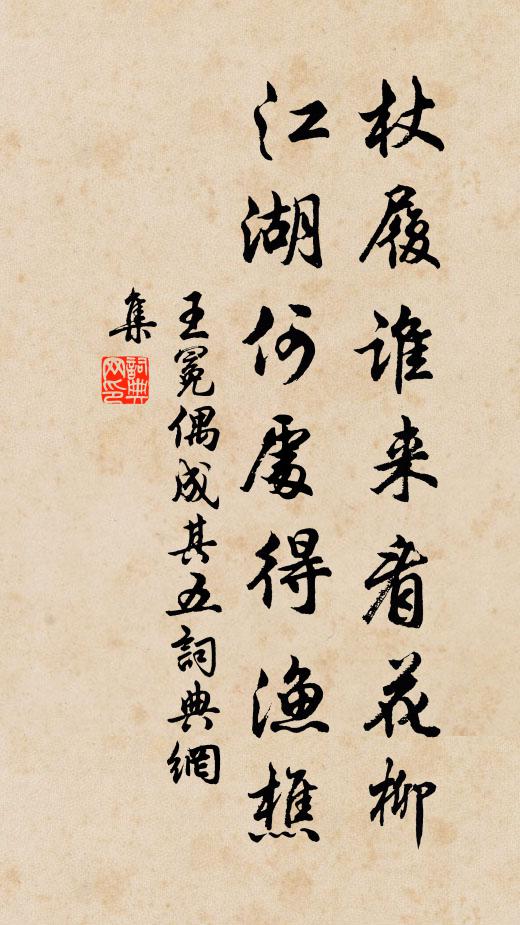 杖履谁来看花柳
江湖何處得渔樵
王冕偶成其五詞典網
集
詞典网印